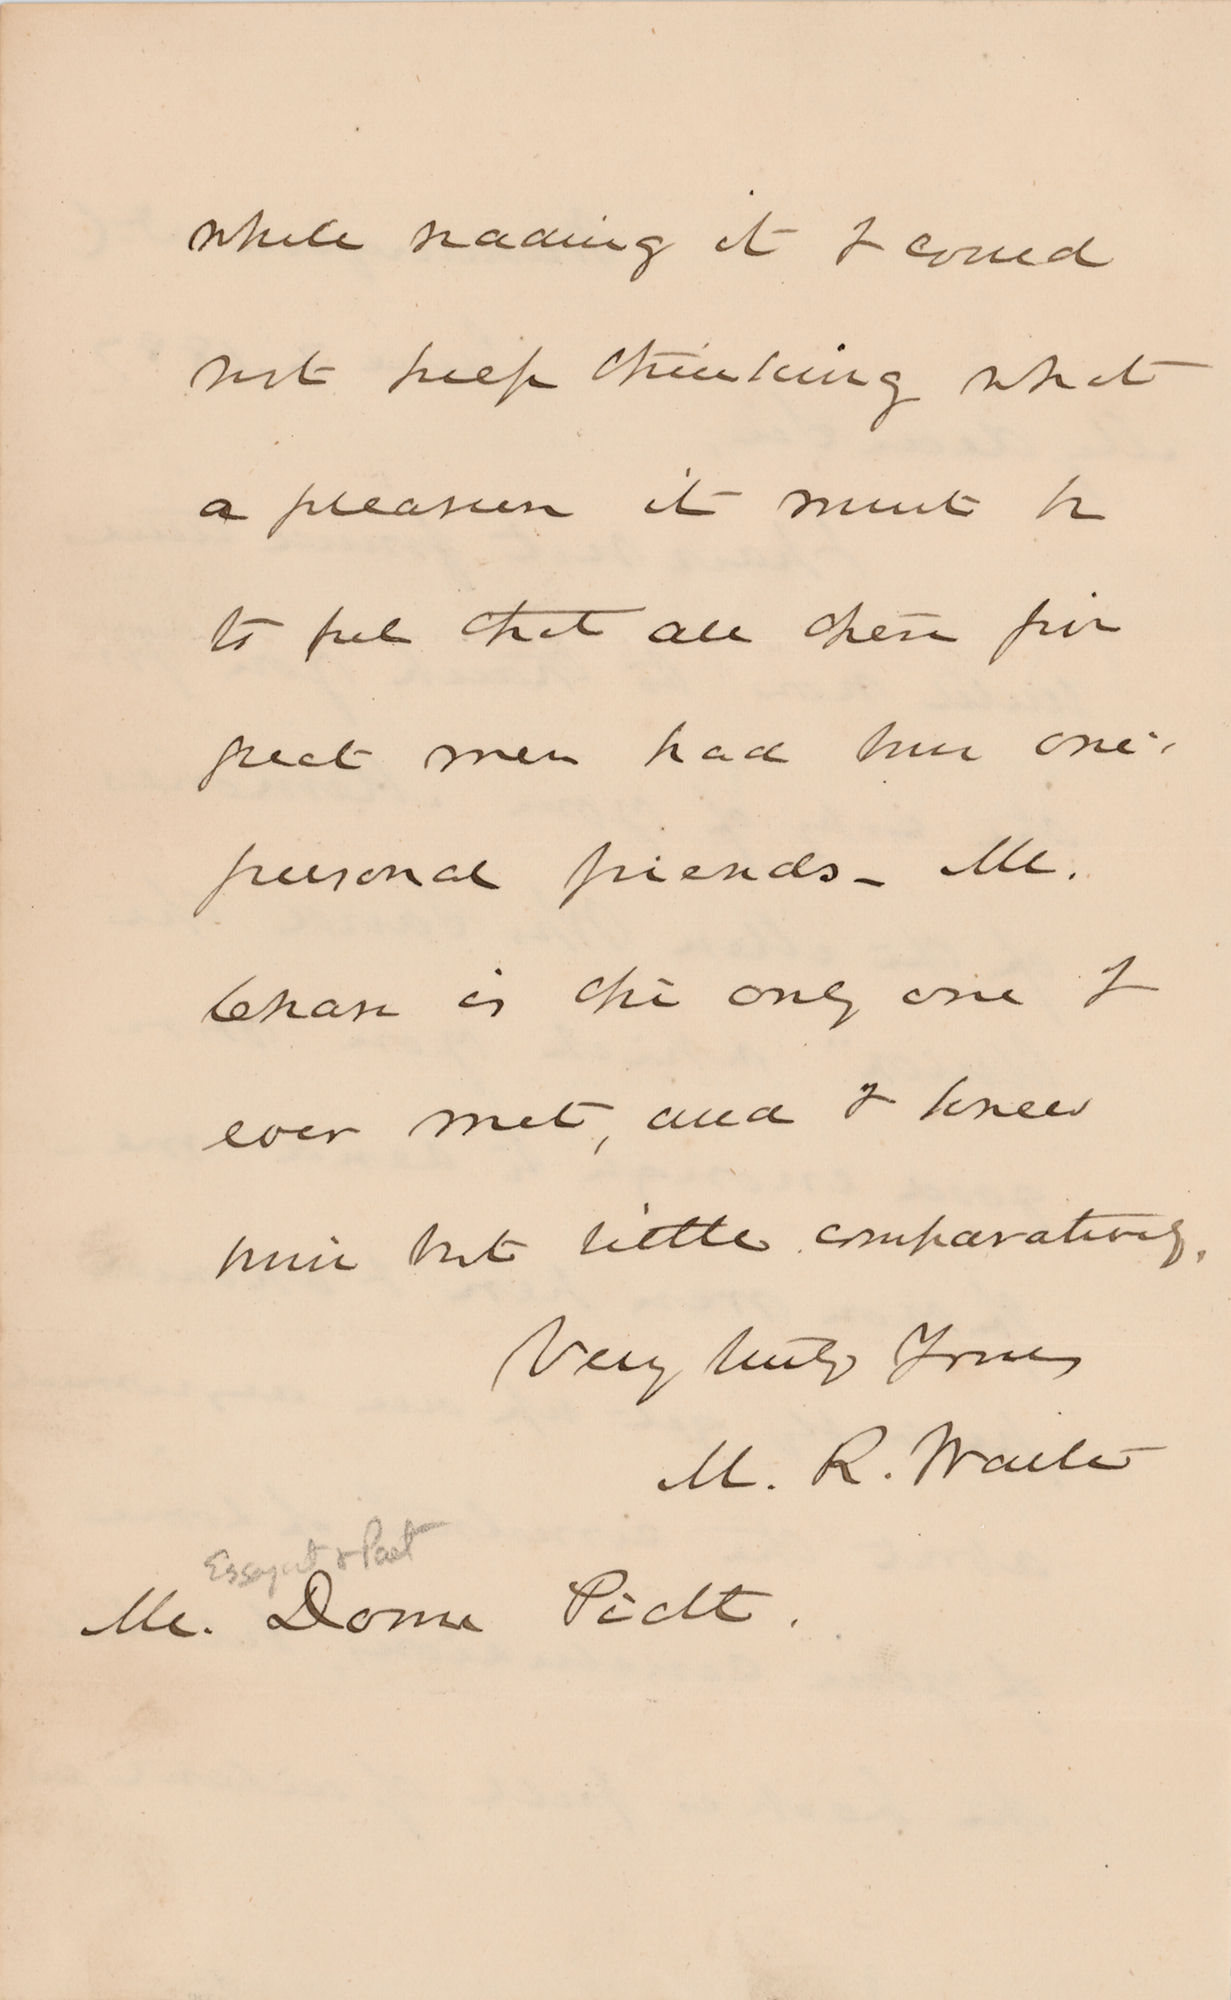 while reading it I could
not keep thinking what
a pleasure it must be
to feel that all these five
great men had been one's
personal friends – Mr.
Chase is the only one I
ever met, and I knew
him but little comparatively.
Very truly Yours
M. R. Waite
Essayist & Poet
Mr. Donn Piatt.